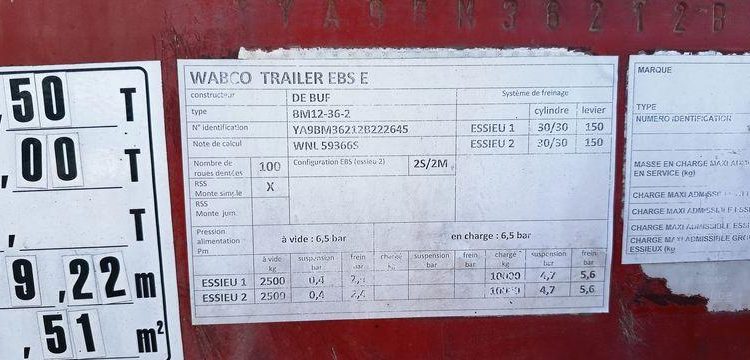 ,50 T
,00 T
, T
9,22 m
,51 m²
WABCO TRAILER EBS E
constructeur DE BUF Système de freinage
type BM12-36-2 cylindre levier
N° identification YA9BM36212B222645 ESSIEU 1 30/30 150
Note de calcul WNL 59366S ESSIEU 2 30/30 150
Nombre de roues dentées 100 Configuration EBS (essieu 2) 2S/2M
RSS Monte simple X
RSS Monte jum.
Pression alimentation Pm à vide : 6,5 bar en charge : 6,5 bar
à vide kg suspension bar frein bar charge kg suspension bar frein bar charge kg suspension bar frein bar
ESSIEU 1 2500 0,4 10000 4,7 5,6
ESSIEU 2 2500 0,4 10000 4,7 5,6
MARQUE
TYPE
NUMERO IDENTIFICATION
MASSE EN CHARGE MAXI
EN SERVICE (kg)
CHARGE MAXI
CHARGE MAXI ADMISSIBLE ESS
CHARGE MAXI ADMISSIBLE ESSI
CHARGE MAXI ADMISSIBLE GRO
ESSIEUX (kg